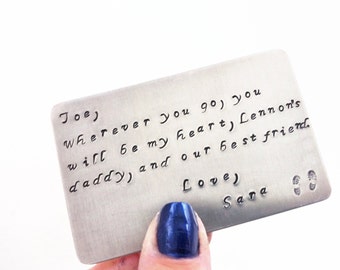 Joe,
Wherever you go, you
will be my heart, Lennon's
daddy, and our best friend.
Love,
Sara